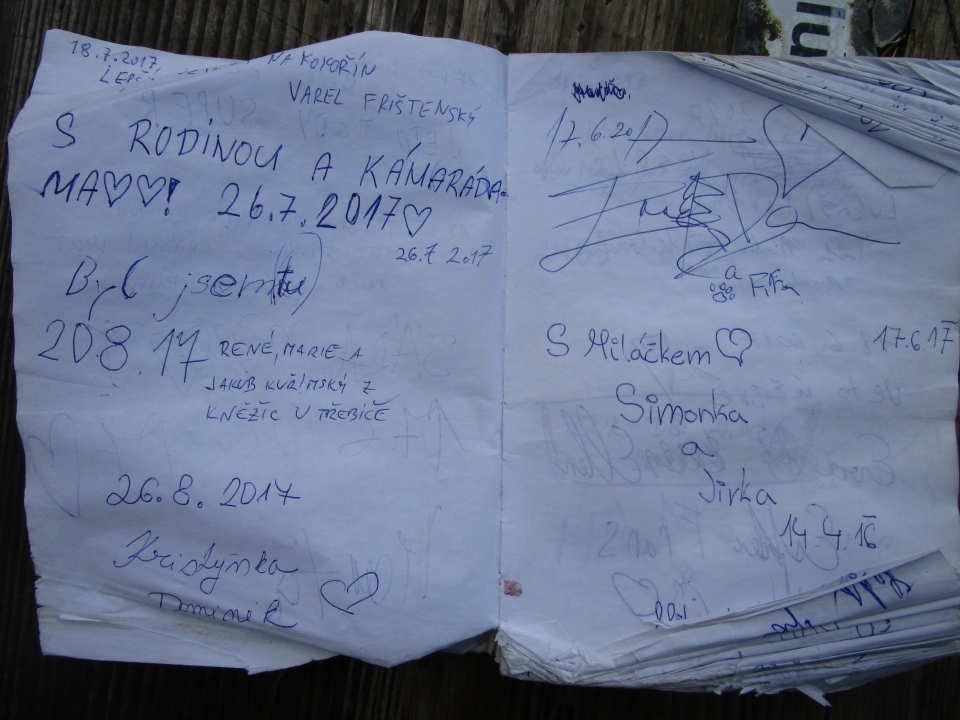 18.7.2017
NA KOKOŘÍN
VAREL FRIŠTENSKÝ
S RODINOU A KÁMARÁDA-
MA♡♡! 26.7.2017♡
26.7 2017
Byl jsem (tu)
20.8.17 RENÉ, MARIE A
JAKUB KUŽÍMSKÝ Z
KNĚŽIC U TŘEBÍČE
26.8.2017
Kristýnka
Dominik ♡
17.6.2017
a
Fífa
S Miláčkem ♡ 17.6.17
Simonka
a
Jirka
14.4.16